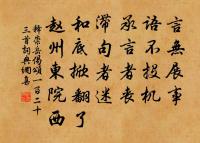 言無展事
語不投机
承言者喪
滯句者迷
和底掀翻了
趙州東院西
釋崇岳偈頌一百二十
三首詞典網集